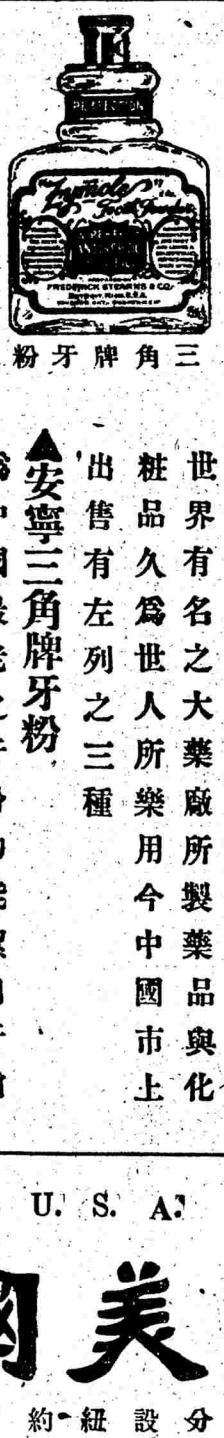 "Zymole"
Tooth Powder
FREDERICK STEARNS & CO.
DETROIT, MICH. U.S.A.
三角牌牙粉
世界有名之大藥廠所製藥品與化
粧品久爲世人所樂用今中國市上
出售有左列之三種
▲安寧三角牌牙粉
U. S. A.
美國
分設紐約